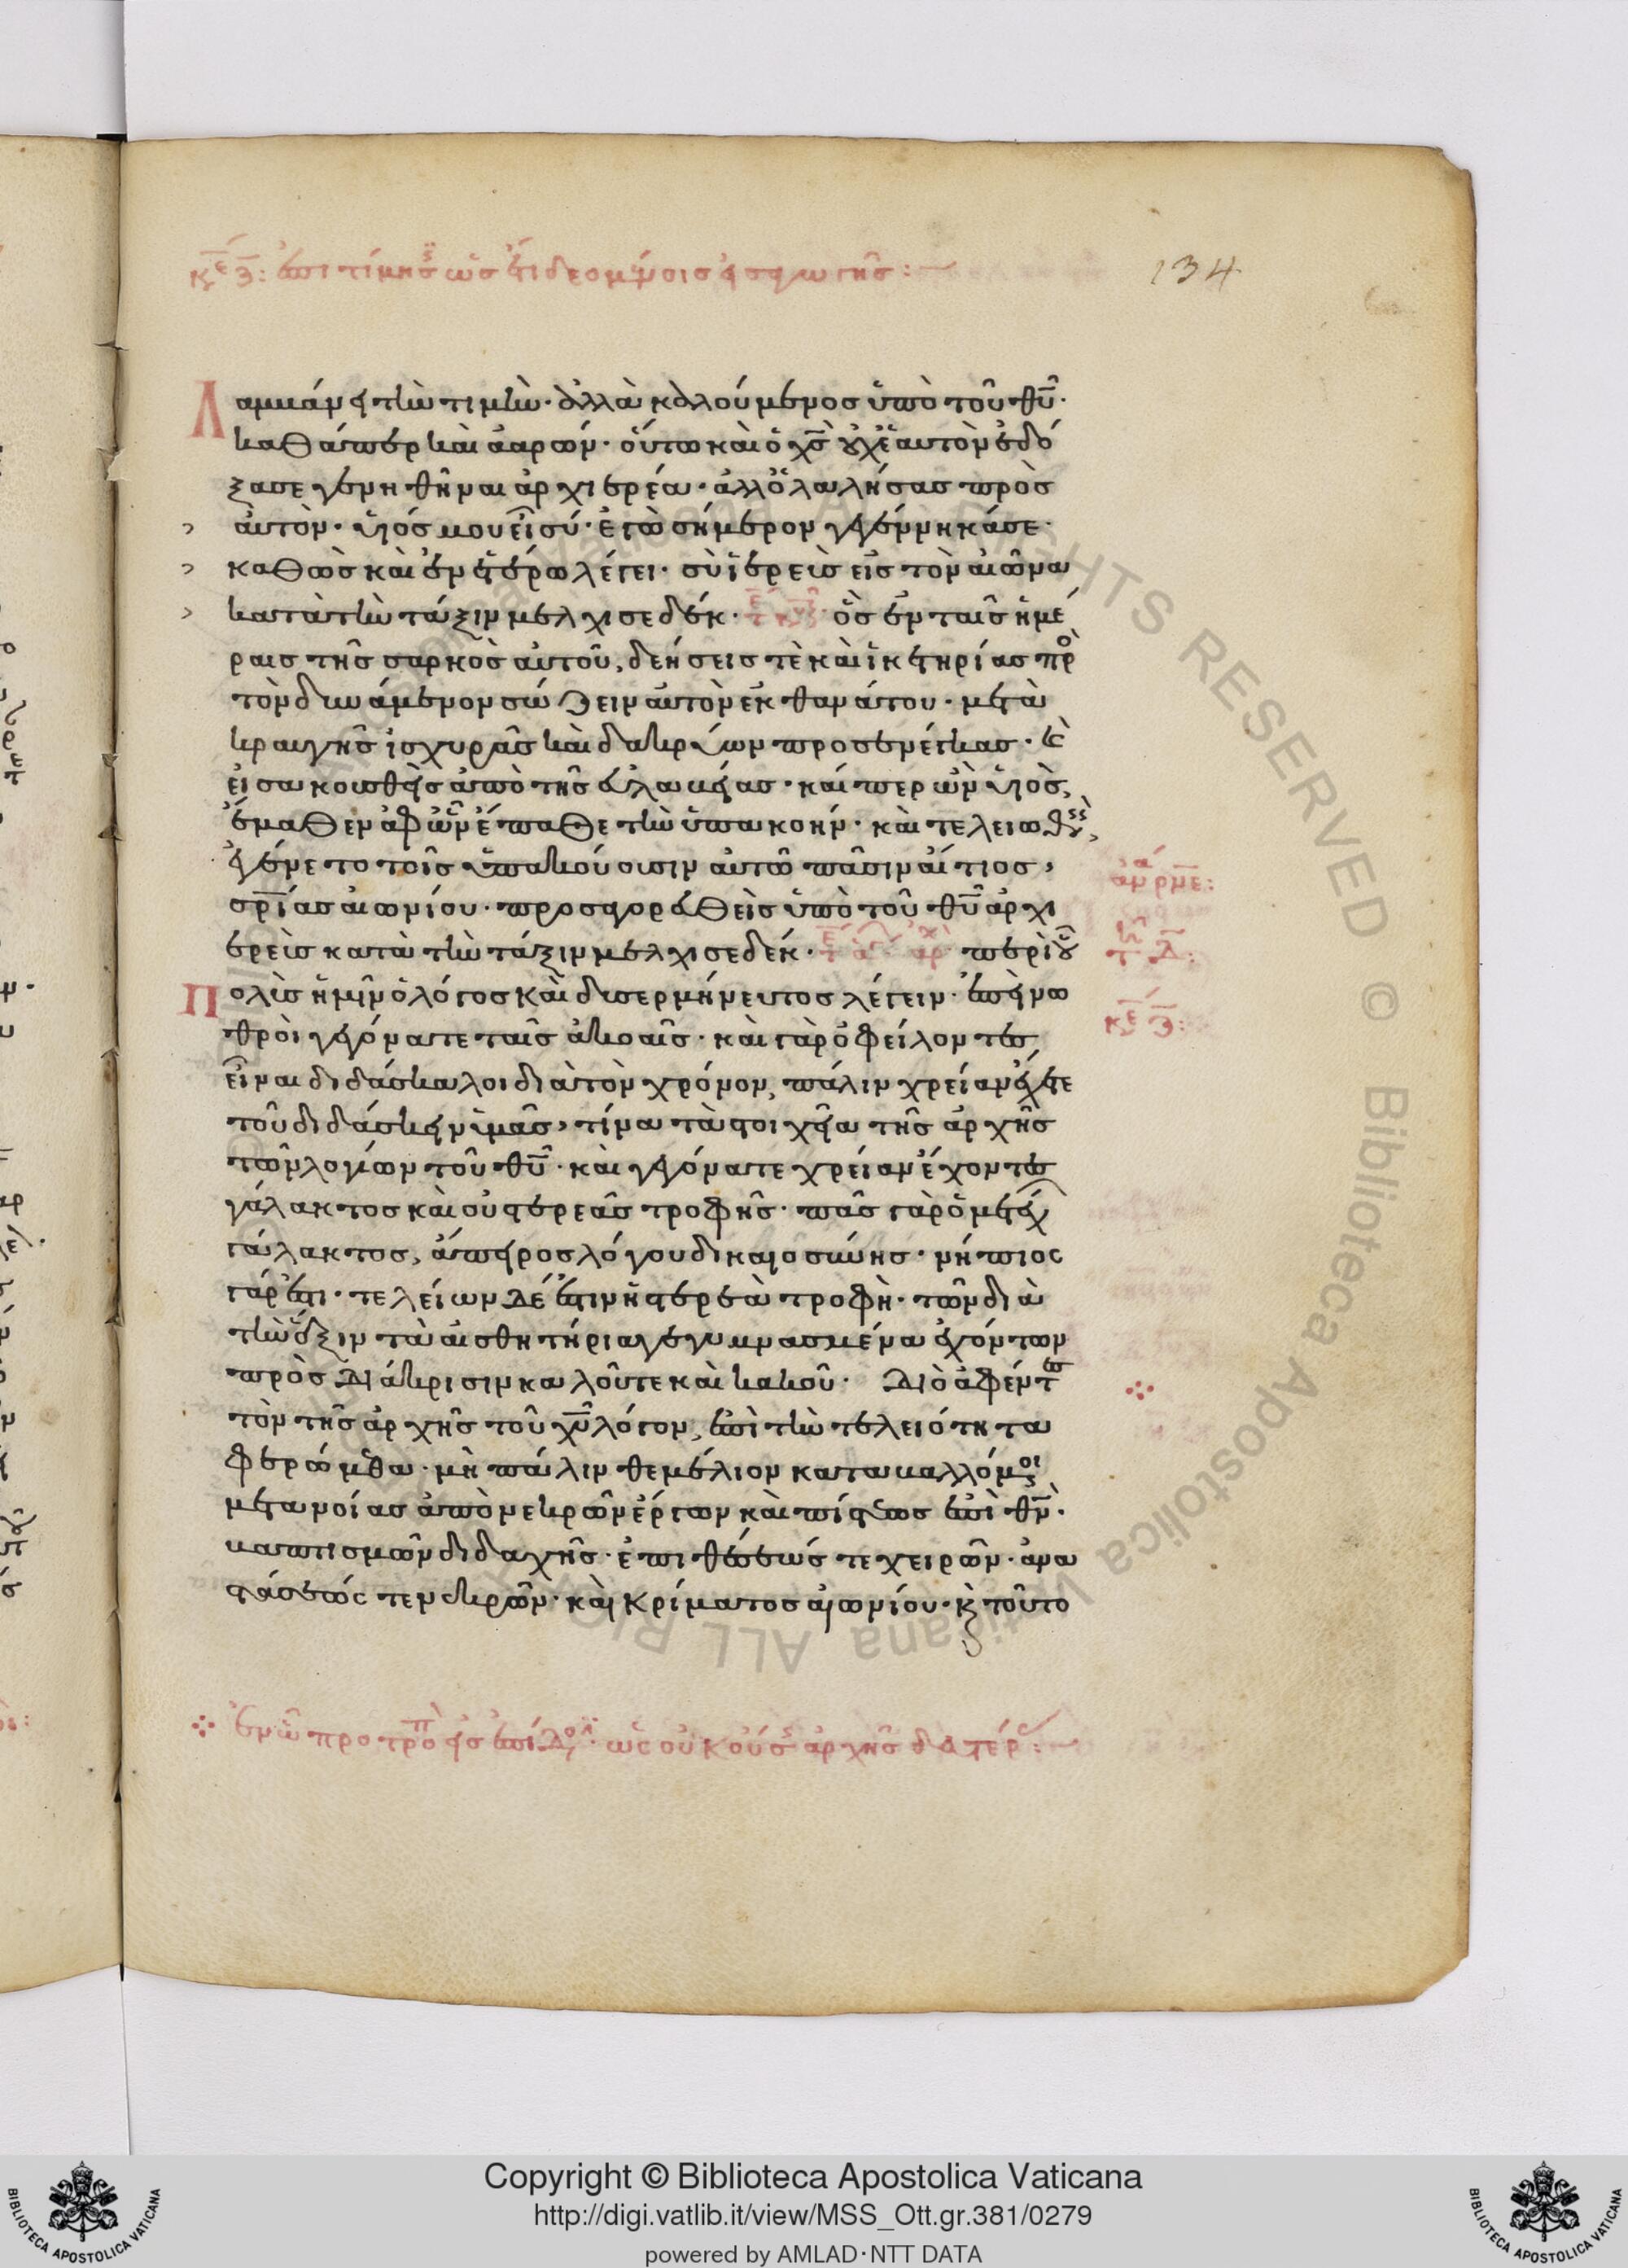 134
Λαμβάνει τὴν τιμὴν· ἀλλὰ καλούμενος ὑπὸ τοῦ θῡ·
καθάπερ καὶ ἀαρών· οὕτω καὶ ὁ χς̄ οὐχ ἑαυτὸν ἐδό
ξασε γενηθῆναι ἀρχιερέα· ἀλλ' ὁ λαλήσας πρὸς
αὐτὸν· υἱός μου εἶ σύ· ἐγὼ σήμερον γεγέννηκά σε·
καθὼς καὶ ἐν ἑτέρω λέγει· σὺ ἱερεὺς εἶς τὸν αἰῶνα
κατὰ τὴν τάξιν μελχισεδέκ· ὃς ἐν ταῖς ἡμέ
ραις τῆς σαρκὸς αὐτοῦ, δεήσεις τὲ καὶ ἱκετηρίας πρὸ
τὸν δυνάμενον σώζειν αὐτὸν ἐκ θανάτου· μετὰ
κραυγῆς ἰσχυρᾶς καὶ δακρύων προσενέγκας· κὲ
εἰσακουσθεὶς ἀπὸ τῆς εὐλαβείας· καίπερ ὢν υἱὸς,
ἔμαθεν ἀφ' ὧν ἔπαθε τὴν ὑπακοήν· καὶ τελειωθεὶς,
ἐγένετο τοῖς ὑπακούουσιν αὐτῶ πᾶσιν αἴτιος,
σρ̄ίας αἰωνίου· προσαγορευθεὶς ὑπὸ τοῦ θῡ ἀρχι
ερεὺς κατὰ τὴν τάξιν μελχισεδέκ· περὶ οὗ
Πολὺς ἡμῖν ὁ λόγος καὶ δυσερμήνευτος λέγειν· ἐπεὶ νω
θροὶ γεγόνατε ταῖς ἀκοαῖς· καὶ γὰρ ὀφείλοντες
εἶναι διδάσκαλοι διὰ τὸν χρόνον, πάλιν χρείαν ἔχετε
τοῦ διδάσκειν ὑμᾶς, τίνα τὰ στοιχεῖα τῆς ἀρχῆς
τῶν λογίων τοῦ θῡ· καὶ γεγόνατε χρείαν ἔχοντες
γάλακτος καὶ οὐ στερεᾶς τροφῆς· πᾶς γὰρ ὁ μετέχ
γάλακτος, ἄπειρος λόγου δικαιοσύνης· νήπιος
γάρ ἐστι· τελείων δέ ἐστιν ἡ στερεὰ τροφὴ· τῶν διὰ
τὴν ἕξιν τὰ αἰσθητήρια γεγυμνασμένα ἐχόντων
πρὸς διάκρισιν καλοῦ τε καὶ κακοῦ· Διὸ ἀφέντες
τὸν τῆς ἀρχῆς τοῦ χῡ λόγον, ἐπὶ τὴν τελειότητα
φερώμεθα· μὴ πάλιν θεμέλιον καταβαλλόμενοι
μετανοίας ἀπὸ νεκρῶν ἔργων καὶ πίστεως ἐπὶ θν̄·
βαπτισμῶν διδαχῆς· ἐπιθέσεώς τε χειρῶν· ἀνα
στάσεώς τε νεκρῶν· καὶ κρίματος αἰωνίου· κ τοῦτο
Copyright © Biblioteca Apostolica Vaticana
http://digi.vatlib.it/view/MSS_Ott.gr.381/0279
powered by AMLAD·NTT DATA